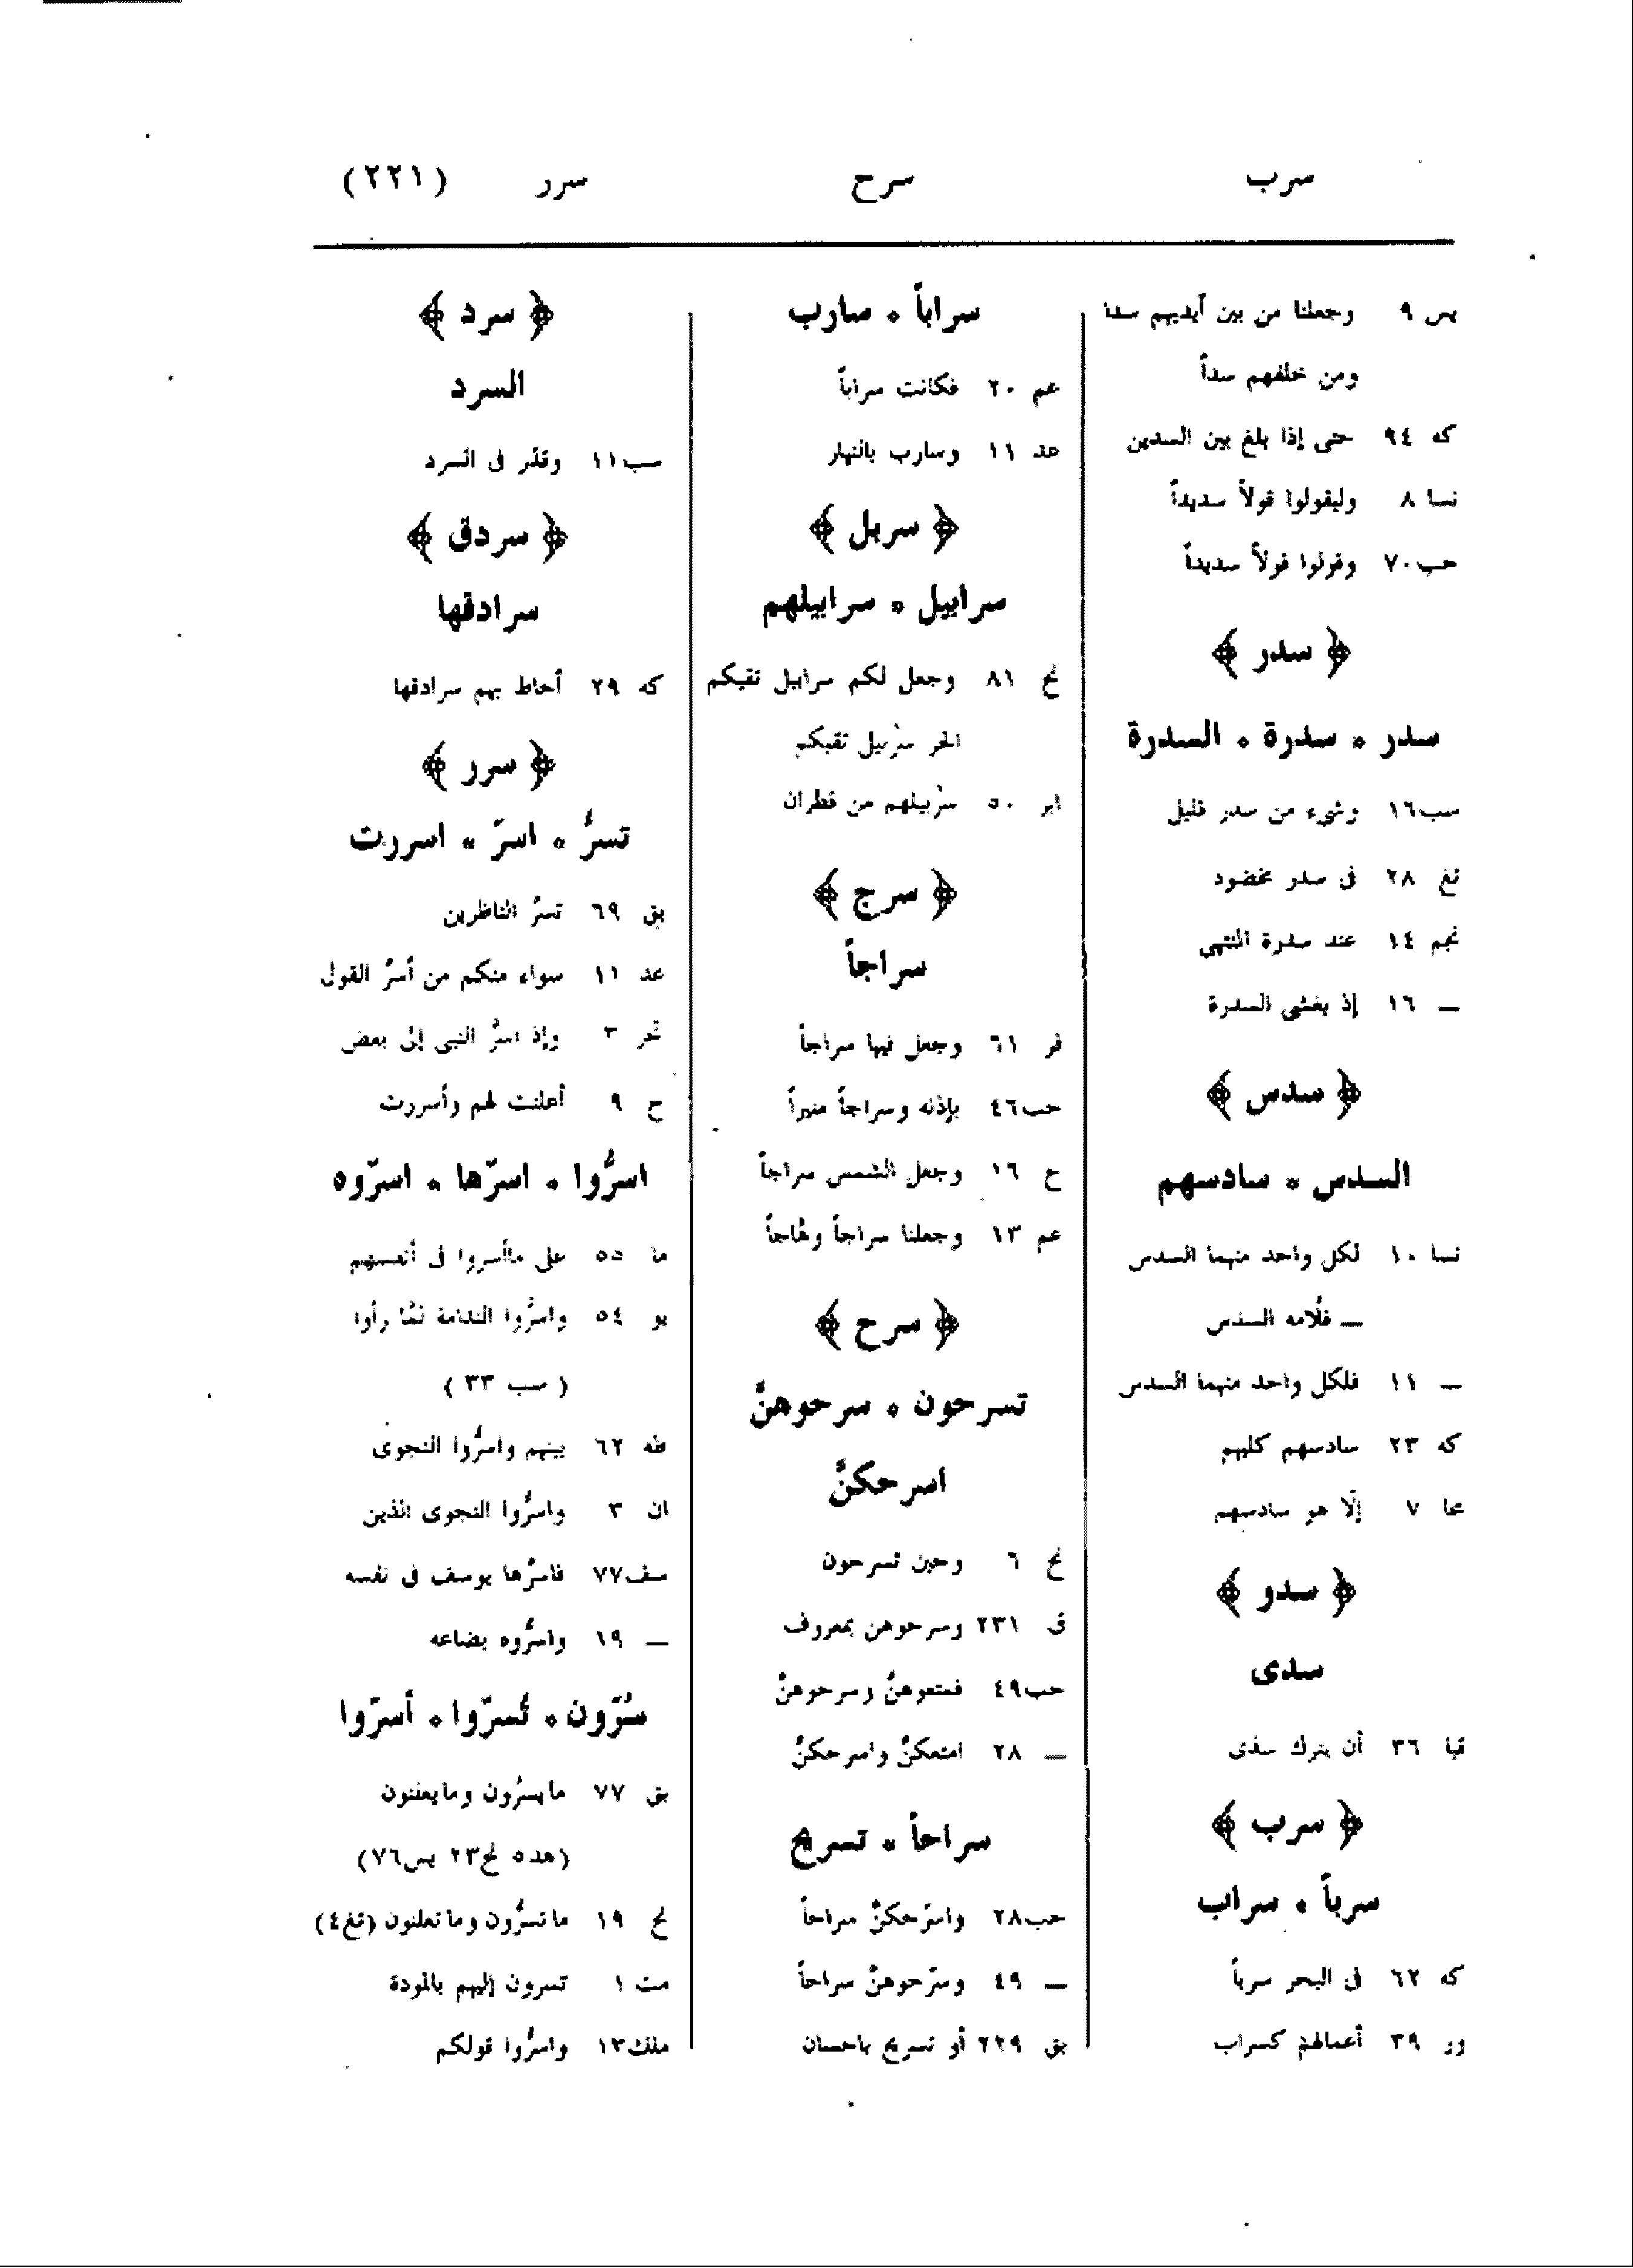 سرب سرح سرر (٢٢١)
يس ٩ وجعلنا من بين أيديهم سداً
ومن خلفهم سداً
كه ٩٤ حتى إذا بلغ بين السدين
نسا ٨ وليقولوا قولاً سديداً
حب٧٠ وقولوا قولاً سديداً
﴿ سدر ﴾
سدر ٠ سدرة ٠ السدرة
سب١٦ وشيء من سدر قليل
تغ ٢٨ فى سدر مخضود
نجم ١٤ عند سدرة المنتهى
ــ ١٦ إذ يغشى السدرة
﴿ سدس ﴾
السدس ٠ سادسهم
نسا ١٠ لكل واحد منهما السدس
ــ فلأمه السدس
ــ ١١ فلكل واحد منهما السدس
كه ٢٣ سادسهم كلبهم
مجا ٧ إلّا هو سادسهم
﴿ سدو ﴾
سدى
قيا ٣٦ أن يترك سدى
﴿ سرب ﴾
سرباً ٠ سراب
كه ٦٢ فى البحر سرباً
ور ٣٩ أعمالهم كسراب
سراباً ٠ سارب
عم ٢٠ فكانت سراباً
عد ١١ وسارب بالنهار
﴿ سربل ﴾
سرابيل ٠ سرابيلهم
نح ٨١ وجعل لكم سرابيل تقيكم
الحر سرٰبيل تقيكم
ابر ٥٠ سرٰبيلهم من قطران
﴿ سرج ﴾
سراجاً
فر ٦١ وجعل فيها سراجاً
حب٤٦ بإذنه وسراجاً منيراً
ح ١٦ وجعل الشمس سراجاً
عم ١٣ وجعلنا سراجاً وهّاجاً
﴿ سرح ﴾
تسرحون ٠ سرحوهنَّ
اسرحكنَّ
نح ٦ وحين تسرحون
ق ٢٣١ وسرحوهن بمعروف
حب٤٩ فمتعوهنَّ وسرحوهنَّ
ــ ٢٨ امتعكنَّ واسرحكنَّ
سراحاً ٠ تسريح
حب٢٨ واسرّحكنَّ سراحاً
ــ ٤٩ وسرّحوهنَّ سراحاً
بق ٢٢٩ أو تسريح باحسان
﴿ سرد ﴾
السرد
سب١١ وقدّر فى السرد
﴿ سردق ﴾
سرادقها
كه ٢٩ أحاط بهم سرادقها
﴿ سرر ﴾
تسرُّ ٠ اسرّ ٠ اسررت
بق ٦٩ تسرُّ الناظرين
عد ١١ سواء منكم من أسرَّ القول
تحر ٣ وإذ اسرَّ النبى إلى بعض
ح ٩ أعلنت لهم وأسررت
اسرُّوا ٠ اسرّها ٠ اسرّوه
ما ٥٥ على ماأسروا فى أنفسهم
يو ٥٤ واسرُّوا الندامة لمّا رأوا
( سب ٣٣ )
طه ٦٢ بينهم واسرُّوا النجوى
ان ٣ واسرُّوا النجوى الذين
سف٧٧ فاسرَّها يوسف فى نفسه
ــ ١٩ واسرُّوه بضاعه
سُرّون ٠ تُسرّوا ٠ أسرّوا
بق ٧٧ مايسرُّون ومايعلنون
(هد٥ نح٢٣ يس٧٦)
نح ١٩ ماتسرُّون وماتعلنون (تغ٤)
مت ١ تسرون إليهم بالمودة
ملك١٣ واسرُّوا قولكم